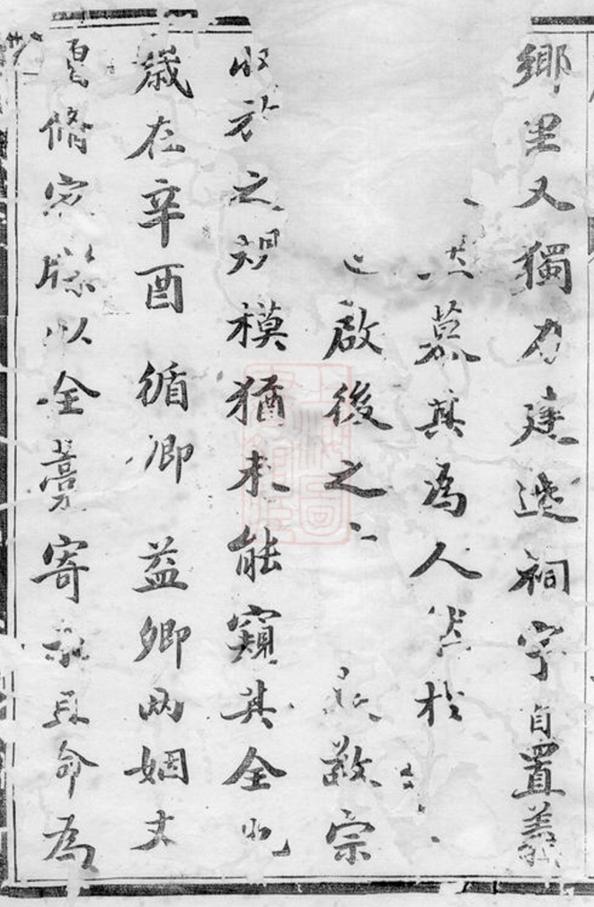 鄉里又獨力建造祠宇自置義
慕其為人然於
啟後之敬宗
收族之規模猶未能窺其全也
歲在辛酉循卿益卿兩姻丈
修家牒以全藁寄示且命為